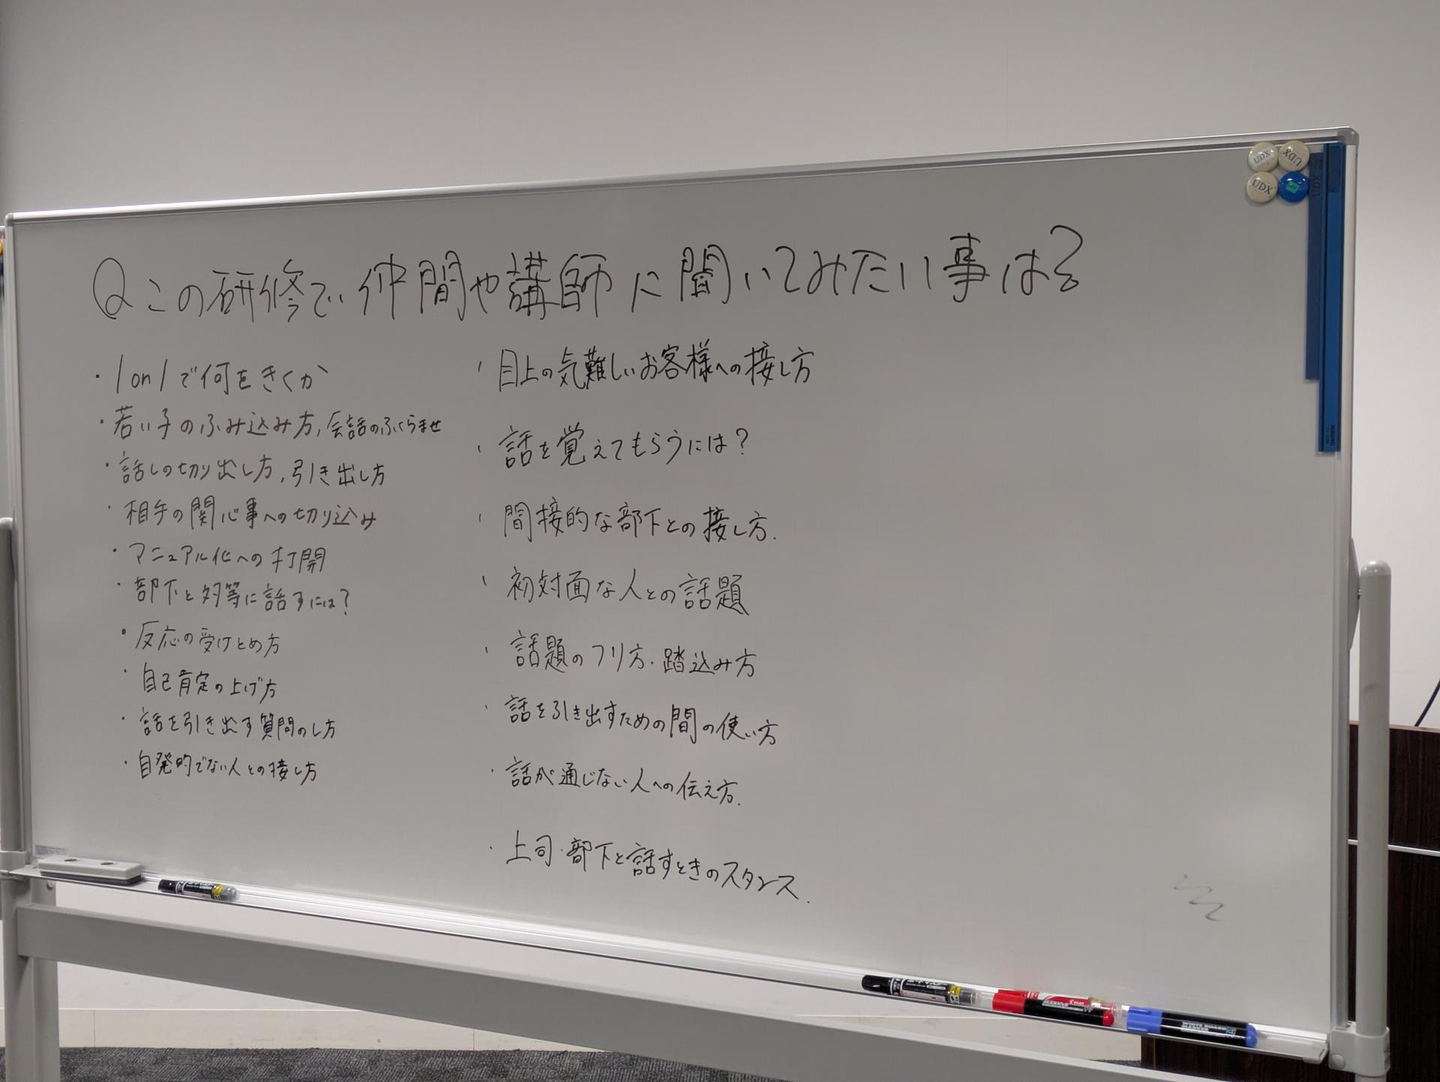 Qこの研修で、仲間や講師に聞いてみたい事は?
・1on1で何をきくか
・若い子のふみ込み方,会話のふくらませ
・話しの切り出し方,引き出し方
・相手の関心事への切り込み
・マニュアル化への打開
・部下と対等に話すには?
・反応の受けとめ方
・自己肯定の上げ方
・話を引き出す質問のし方
・自発的でない人との接し方
・目上の気難しいお客様への接し方
・話を覚えてもらうには?
・間接的な部下との接し方.
・初対面な人との話題
・話題のフリ方・踏込み方
・話を引き出すための間の使い方
・話が通じない人への伝え方.
・上司・部下と話すときのスタンス.
UDX
UDX
UDX
UDX